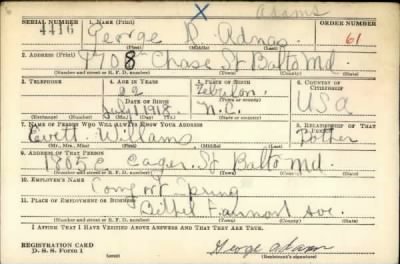 X Adams
SERIAL NUMBER 1. NAME (Print) ORDER NUMBER
George D. Adnas 61
(First) (Middle) (Last)
2. ADDRESS (Print)
1708 Chase St Balto Md
(Number and street or R. F. D. number) (Town) (County) (State)
3. TELEPHONE 4. AGE IN YEARS 5. PLACE OF BIRTH 6. COUNTRY OF CITIZENSHIP
22 Zebulon
DATE OF BIRTH (Town or county) USA
July 1 1918 N.C.
(Exchange) (Number) (Mo.) (Day) (Yr.) (State or country)
7. NAME OF PERSON WHO WILL ALWAYS KNOW YOUR ADDRESS 8. RELATIONSHIP OF THAT PERSON
Evett Williams
(Mr., Mrs., Miss) (First) (Middle) (Last)
9. ADDRESS OF THAT PERSON
1805 E Eager St Balto Md.
(Number and street or R. F. D. number) (Town) (County) (State)
10. EMPLOYER'S NAME
Comfort Spring
11. PLACE OF EMPLOYMENT OR BUSINESS
Bethel Fairmont Ave.
(Number and street or R. F. D. number) (Town) (County) (State)
I AFFIRM THAT I HAVE VERIFIED ABOVE ANSWERS AND THAT THEY ARE TRUE.
REGISTRATION CARD
D. S. S. Form 1 George Adams
(Registrant's signature)